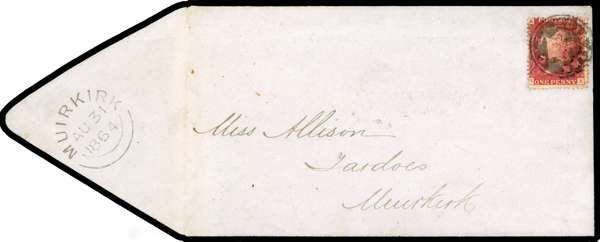 MUIRKIRK
AU 31
1864
ONE PENNY
Miss Allison
Tardoes
Muirkirk